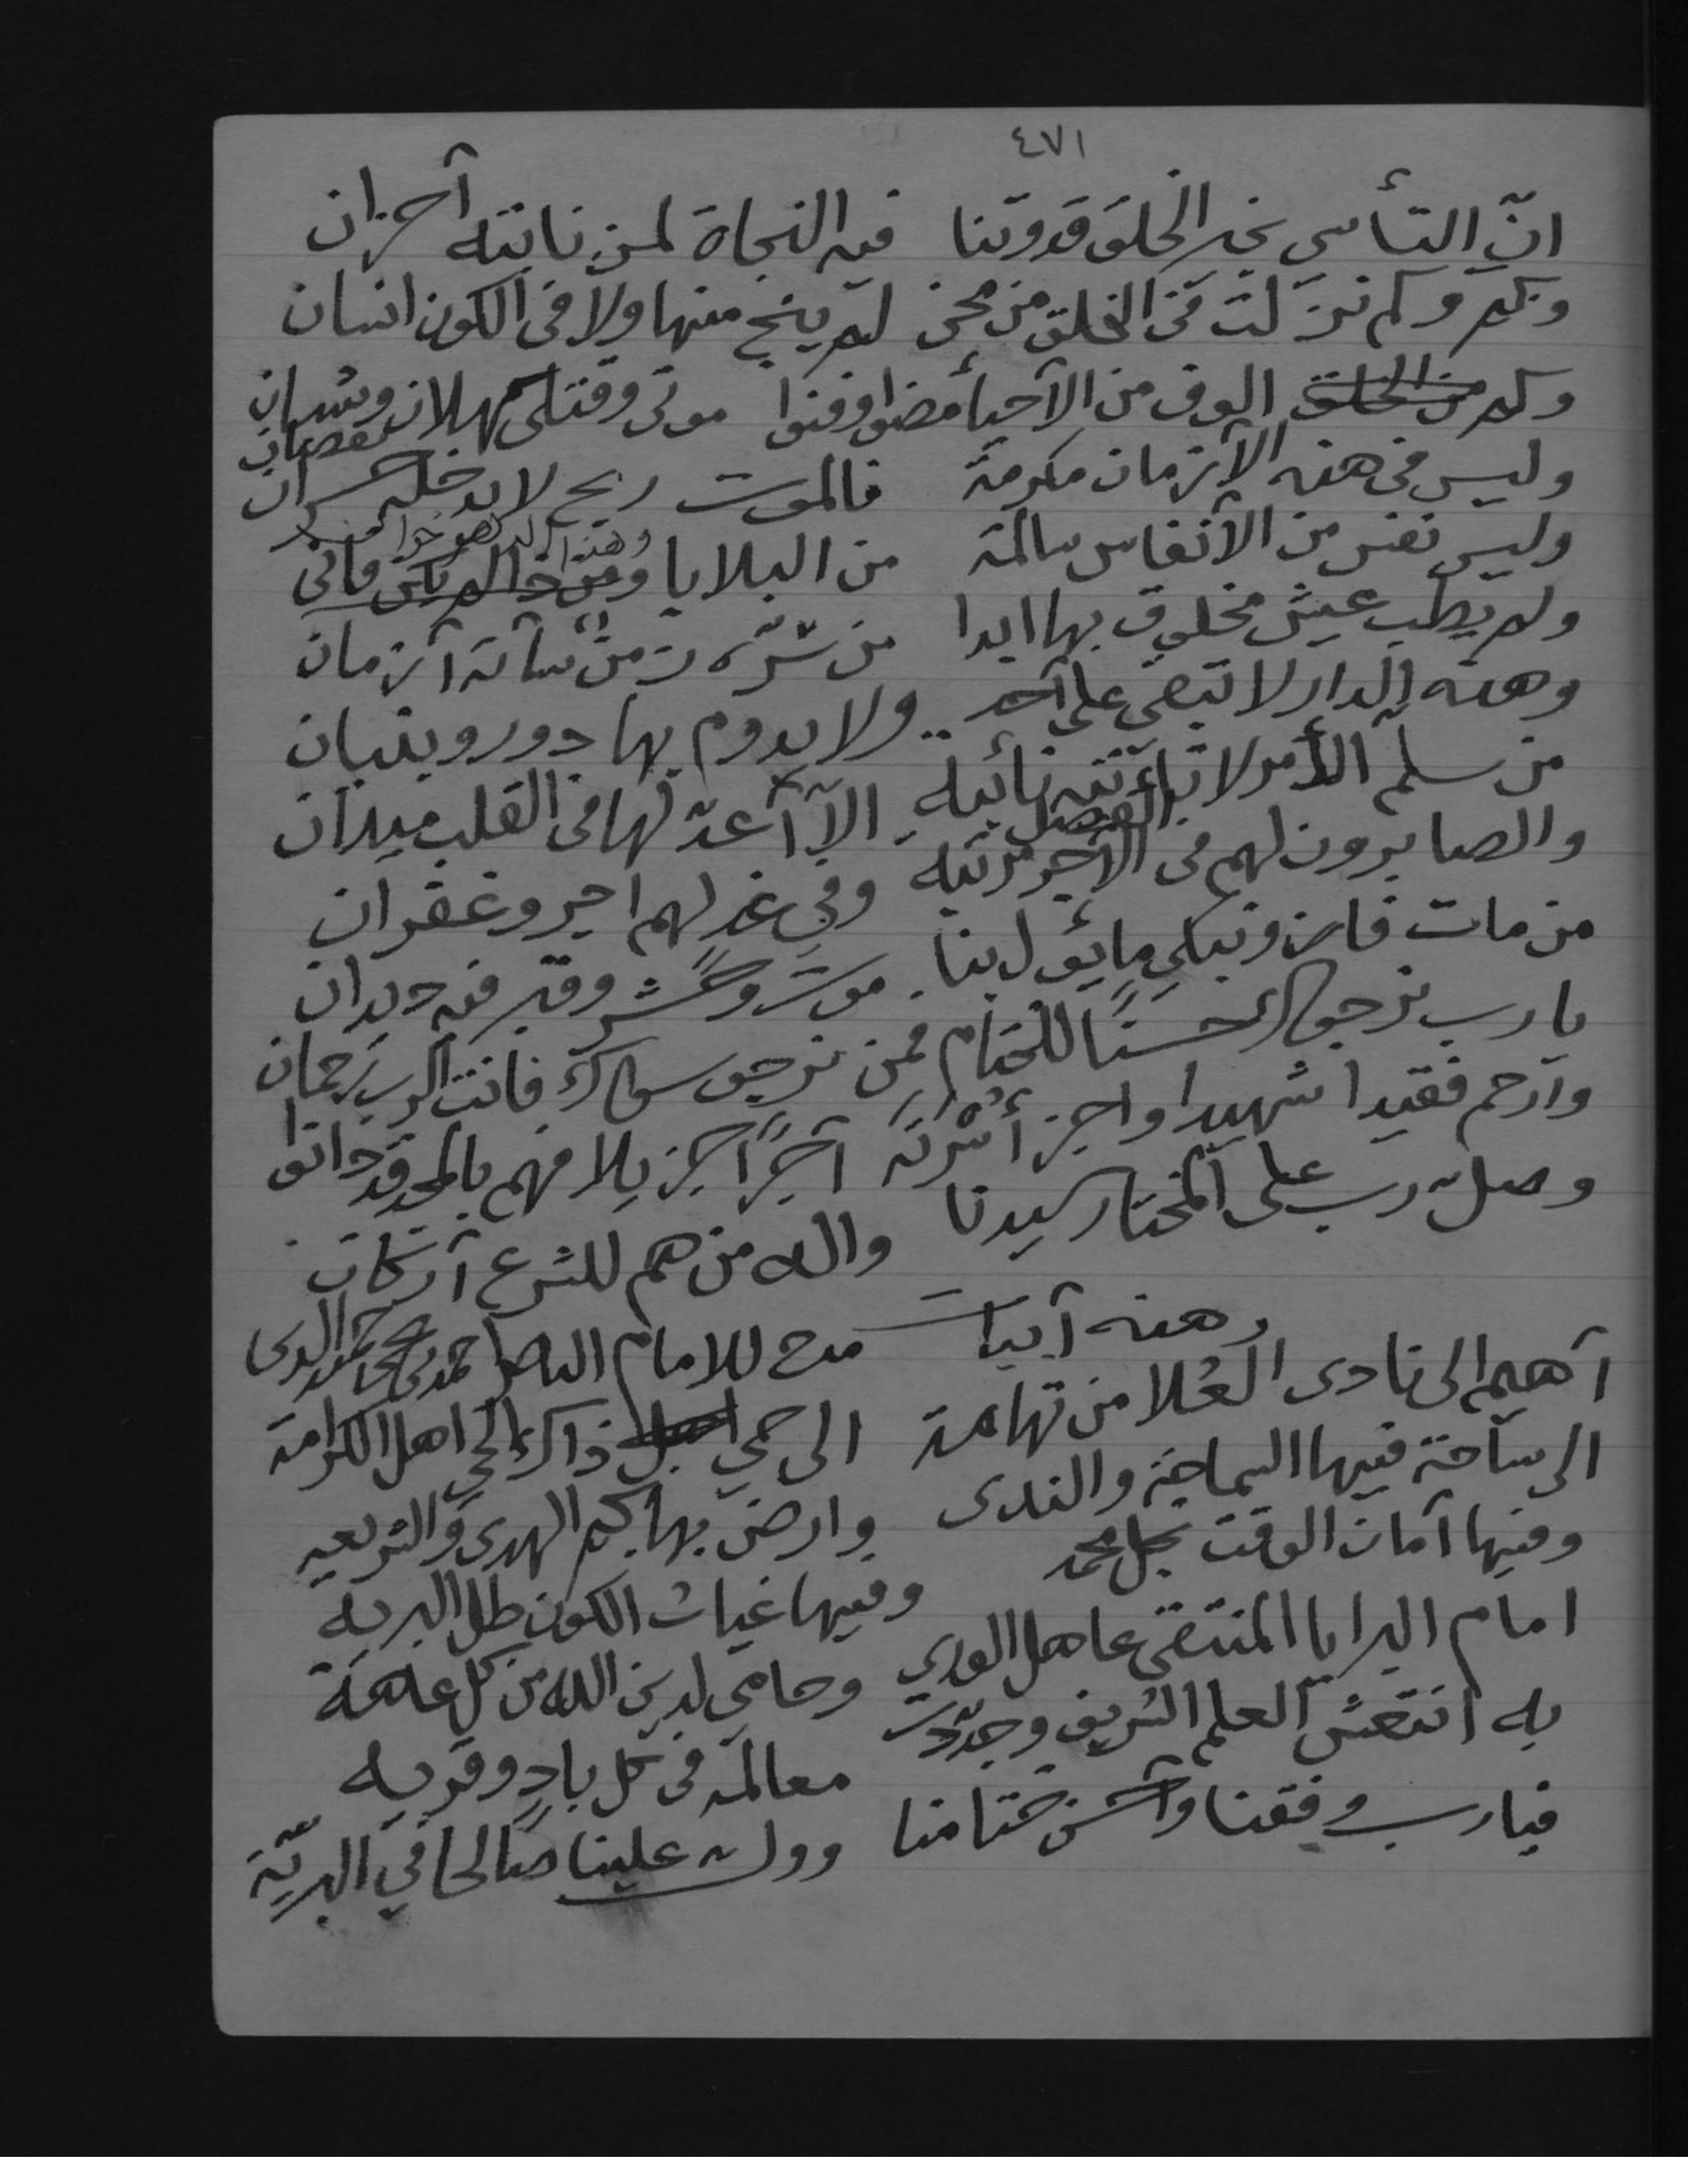 ٤٧١
انّ التأسي بخير الخلق قدوتنا فيه النجاة لمن نابته آحزان
وكم وكم نزلت في الخلق من محن لم ينج منها ولا في الكون انسان
وكم من الخلق الوف من الآحيأ مضوا وفنوا موتى وقتلى كهلان وشبان
وليس في هذه الآزمان مكرمة فالموت ربح لا يدخله خسران نقصان
وليس نفس من الآنفاس سالمة من البلايا وهذا
ولم يطب عيش مخلوق بها ابدا من سرّه زمنٌ سآته آزمان
وهذه الدار لا تبقي على آحد ولا يدوم بها دور وبنيان
من سلم الأمر لا تأته نائبه الآ آعدّ لها في القلب ميدان
والصابرون لهم في الآجر مرتبه الفضل وفي غدٍ لهم اجر وغفران
من مات فاز ونبكي ما يؤل بنا موت وحشر وقبر فيه ديدان
يا رب نرجوك حسنًا للختام فمن نرجو سواك فانت الرب رحمان
وآرحم فقيدا شهيدا واجز أسرته آجرًا جزيلا فهم بالحمد قد دانوا
وصلّ رب على المختار سيدنا واله من هم للشرع آركان
وهذه آبيات مدح للامام الناصر احمد بن يحيى حميد الدين
آهيم الى نادى العُلا من تهامة الى حمي ذاك الحي اهل الكرامة
الى ساحة فيها السماحة والندى وارض بها نجم الهدى والشريعه
وفيها آمان الوقت نجل محمد وفيها غياث الكون ظل البريه
امام البرايا المنتقى عاهل الورى وحامي لدين الله من كل عاهة
به انتعش العلم الشريف وجددت معالمه في كل بادٍ وقريه
فيارب وفقنا وآحسن ختامنا وولّ علينا صالحا في البريّة